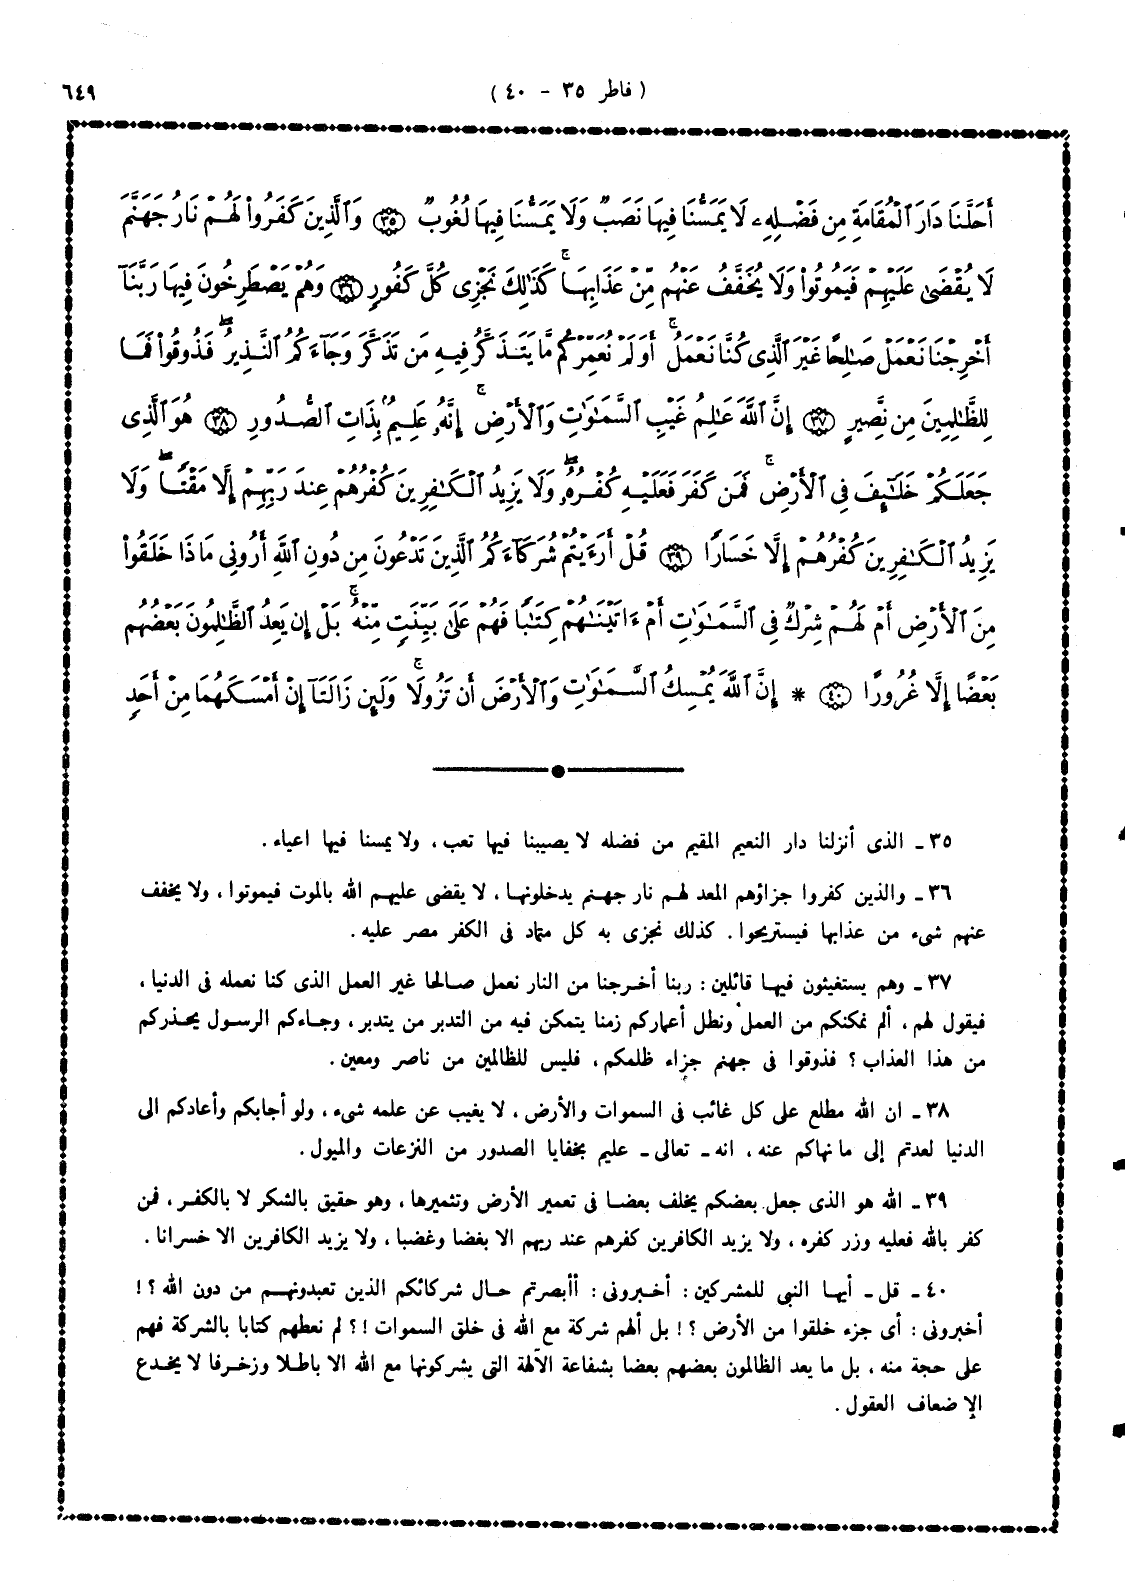 ( فاطر ٣٥ – ٤٠ )
٦٤٩
أَحَلَّنَا دَارَ ٱلْمُقَامَةِ مِن فَضْلِهِۦ لَا يَمَسُّنَا فِيهَا نَصَبٌ وَلَا يَمَسُّنَا فِيهَا لُغُوبٌ ﴿٣٥﴾ وَٱلَّذِينَ كَفَرُوا۟ لَهُمْ نَارُ جَهَنَّمَ
لَا يُقْضَىٰ عَلَيْهِمْ فَيَمُوتُوا۟ وَلَا يُخَفَّفُ عَنْهُم مِّنْ عَذَابِهَا ۚ كَذَٰلِكَ نَجْزِى كُلَّ كَفُورٍ ﴿٣٦﴾ وَهُمْ يَصْطَرِخُونَ فِيهَا رَبَّنَآ
أَخْرِجْنَا نَعْمَلْ صَٰلِحًا غَيْرَ ٱلَّذِى كُنَّا نَعْمَلُ ۚ أَوَلَمْ نُعَمِّرْكُم مَّا يَتَذَكَّرُ فِيهِ مَن تَذَكَّرَ وَجَآءَكُمُ ٱلنَّذِيرُ ۖ فَذُوقُوا۟ فَمَا
لِلظَّٰلِمِينَ مِن نَّصِيرٍ ﴿٣٧﴾ إِنَّ ٱللَّهَ عَٰلِمُ غَيْبِ ٱلسَّمَٰوَٰتِ وَٱلْأَرْضِ ۚ إِنَّهُۥ عَلِيمٌۢ بِذَاتِ ٱلصُّدُورِ ﴿٣٨﴾ هُوَ ٱلَّذِى
جَعَلَكُمْ خَلَٰٓئِفَ فِى ٱلْأَرْضِ ۚ فَمَن كَفَرَ فَعَلَيْهِ كُفْرُهُۥ ۖ وَلَا يَزِيدُ ٱلْكَٰفِرِينَ كُفْرُهُمْ عِندَ رَبِّهِمْ إِلَّا مَقْتًا ۖ وَلَا
يَزِيدُ ٱلْكَٰفِرِينَ كُفْرُهُمْ إِلَّا خَسَارًا ﴿٣٩﴾ قُلْ أَرَءَيْتُمْ شُرَكَآءَكُمُ ٱلَّذِينَ تَدْعُونَ مِن دُونِ ٱللَّهِ أَرُونِى مَاذَا خَلَقُوا۟
مِنَ ٱلْأَرْضِ أَمْ لَهُمْ شِرْكٌ فِى ٱلسَّمَٰوَٰتِ أَمْ ءَاتَيْنَٰهُمْ كِتَٰبًا فَهُمْ عَلَىٰ بَيِّنَتٍ مِّنْهُ ۚ بَلْ إِن يَعِدُ ٱلظَّٰلِمُونَ بَعْضُهُم
بَعْضًا إِلَّا غُرُورًا ﴿٤٠﴾ * إِنَّ ٱللَّهَ يُمْسِكُ ٱلسَّمَٰوَٰتِ وَٱلْأَرْضَ أَن تَزُولَا ۚ وَلَئِن زَالَتَآ إِنْ أَمْسَكَهُمَا مِنْ أَحَدٍ
٣٥ـ الذى أنزلنا دار النعيم المقيم من فضله لا يصيبنا فيها تعب ، ولا يمسنا فيها اعياء .
٣٦ـ والذين كفروا جزاؤهم المعد لهم نار جهنم يدخلونها ، لا يقضى عليهم الله بالموت فيموتوا ، ولا يخفف
عنهم شىء من عذابها فيستريحوا . كذلك نجزى به كل متماد فى الكفر مصر عليه .
٣٧ـ وهم يستغيثون فيها قائلين : ربنا أخرجنا من النار نعمل صالحا غير العمل الذى كنا نعمله فى الدنيا ،
فيقول لهم ، ألم نمكنكم من العمل ونطل أعماركم زمنا يتمكن فيه من التدبر من يتدبر ، وجاءكم الرسول يحذركم
من هذا العذاب ؟ فذوقوا فى جهنم جزاء ظلمكم ، فليس للظالمين من ناصر ومعين .
٣٨ـ ان الله مطلع على كل غائب فى السموات والأرض ، لا يغيب عن علمه شىء ، ولو أجابكم وأعادكم الى
الدنيا لعدتم إلى ما نهاكم عنه ، انه ـ تعالى ـ عليم بخفايا الصدور من النزعات والميول .
٣٩ـ الله هو الذى جعل بعضكم يخلف بعضا فى تعمير الأرض وتثميرها ، وهو حقيق بالشكر لا بالكفر ، فمن
كفر بالله فعليه وزر كفره ، ولا يزيد الكافرين كفرهم عند ربهم الا بغضا وغضبا ، ولا يزيد الكافرين الا خسرانا .
٤٠ـ قل ـ أيها النبى للمشركين : أخبرونى : أأبصرتم حال شركائكم الذين تعبدونهم من دون الله ؟ !
أخبرونى : أى جزء خلقوا من الأرض ؟ ! بل ألهم شركة مع الله فى خلق السموات !؟ لم نعطهم كتابا بالشركة فهم
على حجة منه ، بل ما يعد الظالمون بعضهم بعضا بشفاعة الآلهة التى يشركونها مع الله الا باطلا وزخرفا لا يخدع
الإ ضعاف العقول .